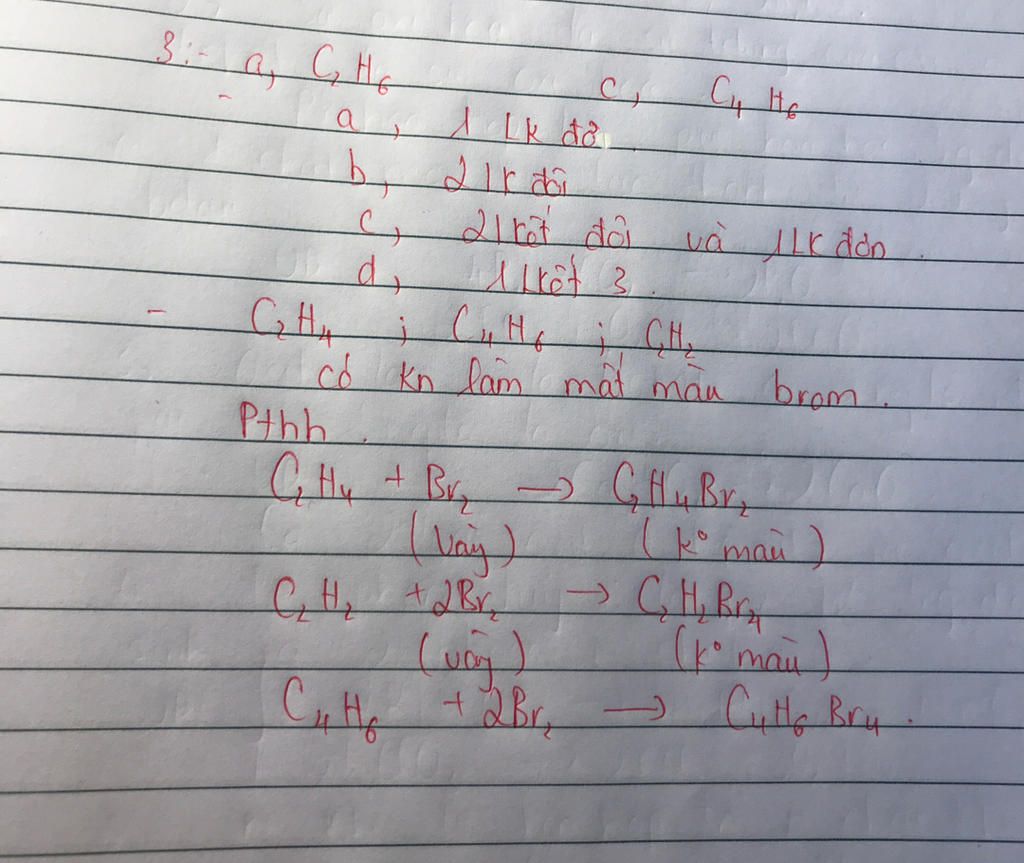 3:- a, C₂H₆ c, C₄H₆
- a, 1 Lk đơ
b, 2 lk đôi
c, 2 lkết đôi và 1 LK đơn.
d, 1 Lkết 3.
- C₂H₄ ; C₄H₆ ; C₂H₂
có kn làm mất màu brom.
Pthh.
C₂H₄ + Br₂ → C₂H₄Br₂
(Vàg) (k° màu)
C₂H₂ + 2Br₂ → C₂H₂Br₄
(vàg) (k° màu)
C₄H₆ + 2Br₂ → C₄H₆Br₄.